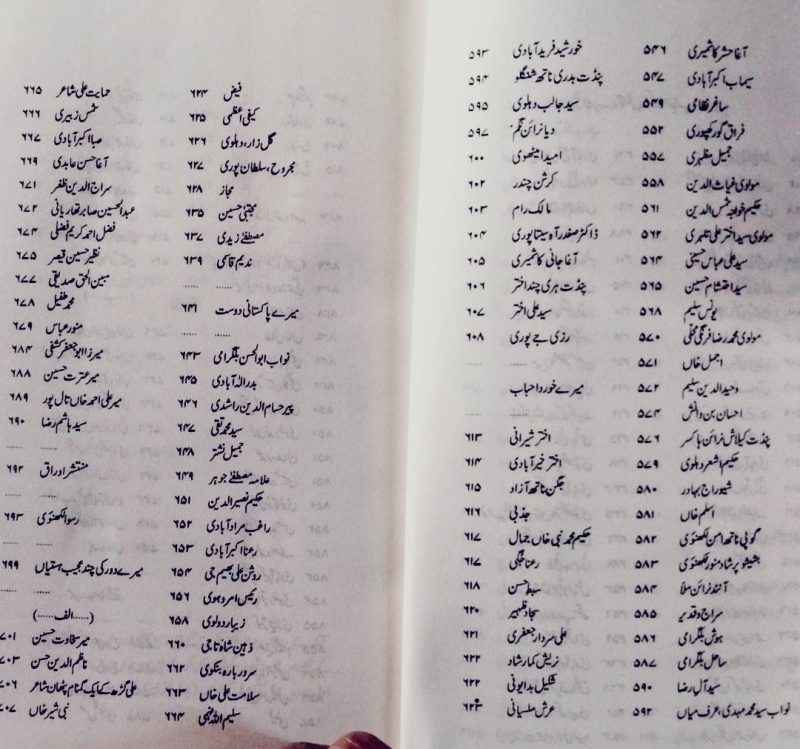 آغا حشر کاشمیری ۵۴۶
سیماب اکبر آبادی ۵۴۷
ساغر نظامی ۵۴۹
فراق گورکھپوری ۵۵۲
جمیل مظہری ۵۵۷
مولوی غیاث الدین ۵۵۸
حکیم خواجہ شمس الدین ۵۶۱
مولوی سید اختر علی تلہری ۵۶۲
سید علی عباس حسینی ۵۶۴
سید احتشام حسین ۵۶۵
یونس سلیم ۵۶۸
مولوی محمد رضا فرنگی محلی ۵۷۰
اجمل خاں ۵۷۱
وحید الدین سلیم ۵۷۲
احسان بن دانش ۵۷۴
پنڈت کیلاش نرائن ہاکسر ۵۷۶
حکیم اشعر دہلوی ۵۷۹
شیوراج بہادر ۵۸۰
اسلم خاں ۵۸۱
گوپی ناتھ امن لکھنوی ۵۸۲
بشیشور پرشاد منور لکھنوی ۵۸۳
آنند نرائن ملا ۵۸۴
سراج و قدیر ۵۸۵
ہوش بلگرامی ۵۸۶
ساحل بلگرامی ۵۸۷
سید آل رضا ۵۹۰
نواب سید محمد مہدی، عرف میاں ۵۹۲
خورشید فرید آبادی ۵۹۳
پنڈت بدری ناتھ شنگلو ۵۹۴
سید جالب دہلوی ۵۹۵
دیا نرائن نگم ۵۹۷
امید امیٹھوی ۶۰۰
کرشن چندر ۶۰۲
مالک رام ۶۰۳
ڈاکٹر صفدر آہ سیتاپوری ۶۰۴
آغا جانی کاشمیری ۶۰۵
پنڈت ہری چند اختر ۶۰۶
سید علی اختر ۶۰۷
رزی جے پوری ۶۰۸
..... .....
میرے خورد احباب
..... .....
اختر شیرانی ۶۱۳
اختر خیر آبادی ۶۱۴
جگن ناتھ آزاد ۶۱۵
جذبی ۶۱۶
حکیم محمد نبی خاں جمال ۶۱۷
رعنا جگی ۶۱۷
سبط حسن ۶۱۸
سجاد ظہیر ۶۲۰
علی سردار جعفری ۶۲۱
نریش کمار شاد ۶۲۲
شکیل بدایونی ۶۲۲
عرش ملسیانی ۶۲۳
فیض ۶۲۴
کیفی اعظمی ۶۲۵
گل زار، دہلوی ۶۲۶
مجروح، سلطان پوری ۶۲۷
مجاز ۶۲۸
مجتبیٰ حسین ۶۳۵
مصطفےٰ زیدی ۶۳۷
ندیم قاسمی ۶۳۹
..... .....
میرے پاکستانی دوست ۶۴۱
..... .....
نواب ابوالحسن بلگرامی ۶۴۳
بدر الہ آبادی ۶۴۵
پیر حسام الدین راشدی ۶۴۶
سید محمد تقی ۶۴۷
جمیل نشتر ۶۴۸
علامہ مصطفےٰ جوہر ۶۴۹
حکیم نصیر الدین ۶۵۱
راغب مراد آبادی ۶۵۲
رعنا اکبر آبادی ۶۵۳
روشن علی بھیم جی ۶۵۴
رئیس امروہوی ۶۵۶
زیبا ردولوی ۶۵۸
ذہین شاہ تاجی ۶۶۰
سرور بارہ بنکوی ۶۶۲
سلامت علی خاں ۶۶۳
سلیم اللہ فہمی ۶۶۴
حمایت علی شاعر ۶۶۵
شمس زبیری ۶۶۶
صبا اکبر آبادی ۶۶۷
آغا حسن عابدی ۶۶۹
سراج الدین ظفر ۶۷۱
عبد الحسین صابر تھاریانی ۶۷۲
فضل احمد کریم فضلی ۶۷۴
نظیر حسین قیصر ۶۷۵
مبین الحق صدیقی ۶۷۷
محمد طفیل ۶۷۸
منور عباس ۶۷۹
میرزا ابو جعفر کشفی ۶۸۴
میر عترت حسین ۶۸۸
میر علی احمد خاں تال پور ۶۸۹
سید ہاشم رضا ۶۹۰
..... .....
منتشر اوراق ۶۹۲
..... .....
رسوا لکھنوی ۶۹۳
..... .....
میرے دور کی چند عجیب ہستیاں ۶۹۹
..... .....
(.....الف.....)
میر سخاوت حسین ۷۰۱
ناظم الدین حسن ۷۰۳
علی گڑھ کے ایک گمنام پٹھان شاعر ۷۰۶
نبی شیر خاں ۷۰۷